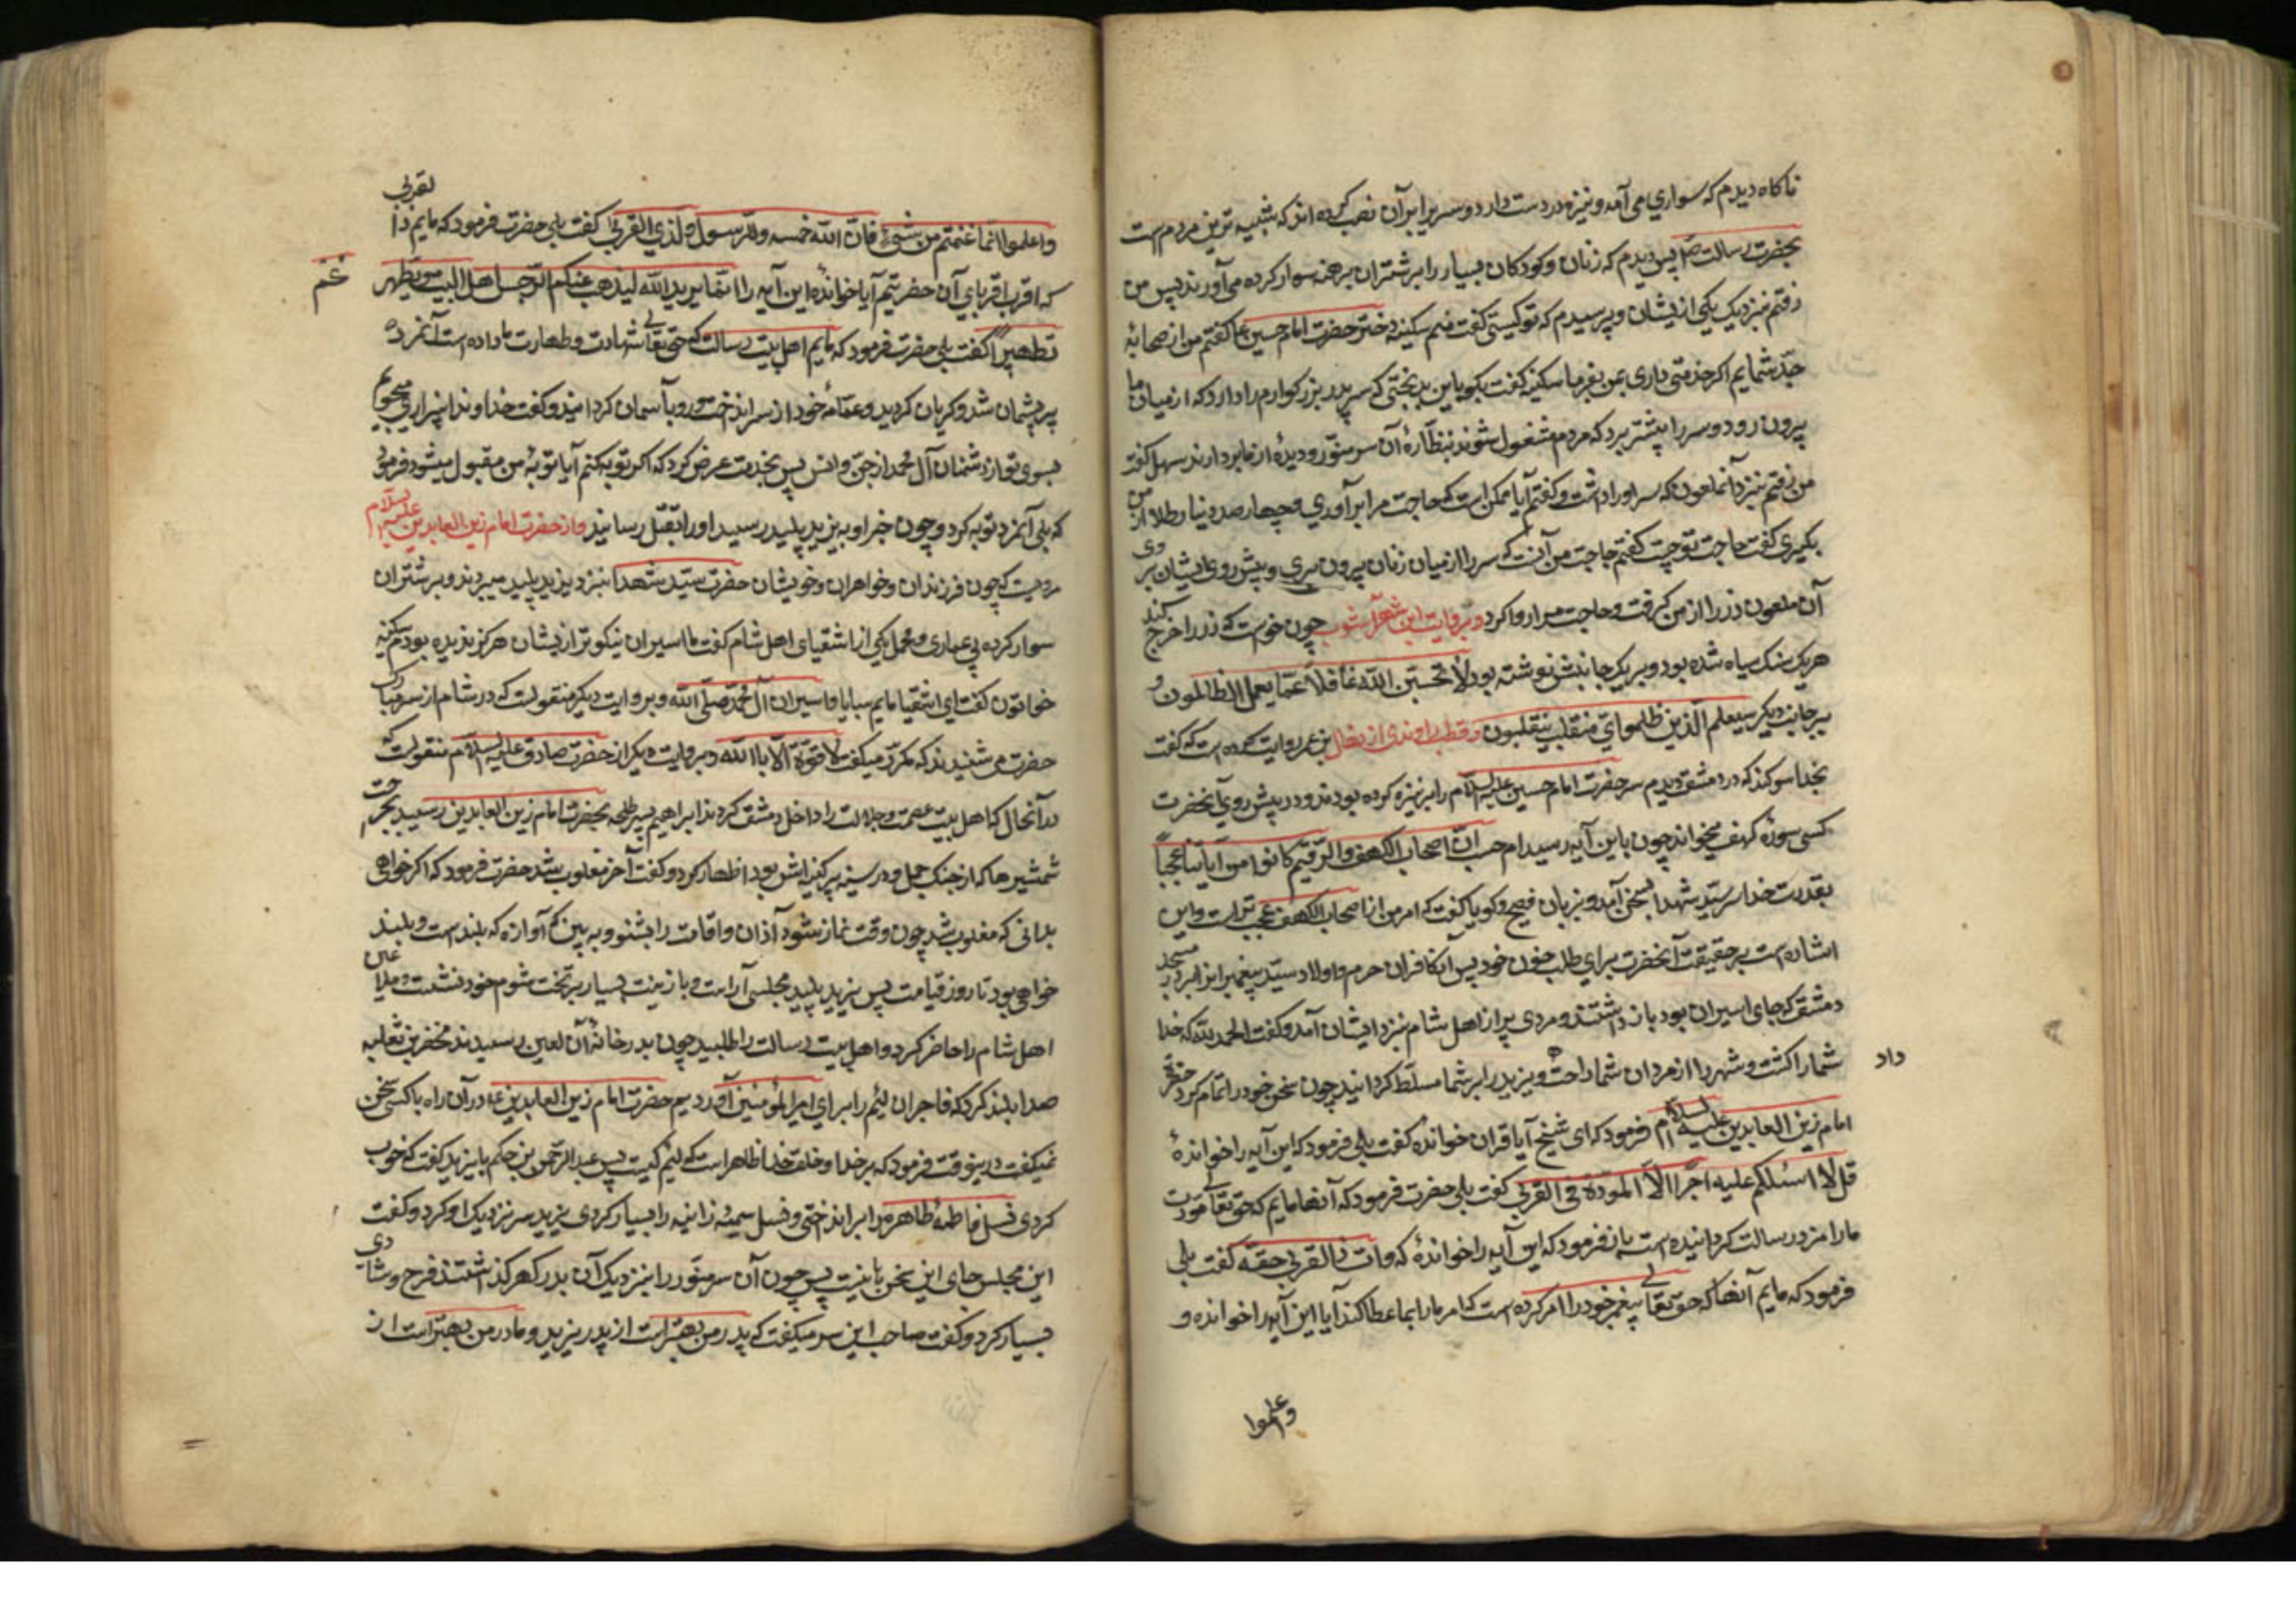 ناکاه دیدم که سواری می آمد و نیزه در دست دارد و سری بر آن نصب کرده اند که شبیه ترین مردم است
بحضرت رسالت ص پس دیدم که زنان و کودکان بسیار را بر شتران برهنه سوار کرده می آورند پس من
رفتم نبزدیک یکی از یشان و پرسیدم که تو کیستی گفت منم سکینه دختر حضرت امام حسین ع گفتم من از صحابهٔ
جد شمایم اکر خدمتی داری بمن بفرما سکینه گفت بکو باین بدبختی که سر پدر بزرکوارم را دارد که از میان ما
بیرون رود و سر را پیشتر برد که مردم مشغول شوند بنظارهٔ آن سر منور و دیده از ما بردارند سهل گفت
من رفتم بنزد آنملعون که سر او را داشت و گفتم آیا ممکن است که حاجت مرا برآوری و چهار صد دینار طلا از من
بگیری گفت حاجت تو چیست گفتم حاجت من آنست که سر را از میان زنان بیرون بری و پیش روی ایشان بروی
آن ملعون زر را از من گرفت و حاجت مرا روا کرد و بروایت ابن شهرآشوب چون خواست که زر را خرج کند
هر یک سنک سیاه شده بود و بر یک جانبش نوشته بود لا تحسبن الله غافلا عما یعمل الظالمون و
بر جانب دیکر سیعلم الذین ظلموا ای منقلب ینقلبون و قطب راوندی از منهال بن عمر روایت کرده است که گفت
بخدا سوکند که در دمشق دیدم سر حضرت امام حسین علیه السلام را بر نیزه کرده بودند و در پیش روی آنحضرت
کسی سورهٔ کهف میخواند چون باین آیه رسید ام حسبت ان اصحاب الکهف والرقیم کانوا من آیاتنا عجبا
بقدرت خدا سر سید شهدا بسخن آمد و بزبان فصیح و کویا گفت که امر من از اصحاب الکهف عجب تر است و این
اشاره است بر حقیقت آنحضرت برای طلب خون خود پس آنکافران حرم و اولاد سید پیغمبرانرا بردر مسجد
دمشق که جای اسیران بود باز داشتند و مردی پیر از اهل شام نبزد ایشان آمد و گفت الحمد لله که خدا
شما را کشت و شهرها از مردان شما راحت داد و یزید را بر شما مسلط کردانید چون سخن خود را تمام کرد حضرت
امام زین العابدین علیه السلام فرمود که ای شیخ آیا قران خوانده گفت بلی فرمود که این آیه را خواندهٔ
قل لا اسئلکم علیه اجرا الا المودة فی القربی گفت بلی حضرت فرمود که آنها مایم که حق تعالی مودت
ما را مزد رسالت کردانیده است باز فرمود که این آیه را خواندهٔ که وات ذا القربی حقه گفت بلی
فرمود که مایم آنها که حق تعالی پیغمبر خود را امر کرده است که امر ما را بما عطا کند آیا این آیه را خوانده و
واعلموا
واعلموا انما غنمتم من شیئ فان الله خمسه وللرسول ولذی القربی گفت بلی حضرت فرمود که مایم ذا لقربی
که اقرب اقربای آن حضرتیم آیا خواندهٔ این آیه را انما یرید الله لیذهب عنکم الرجس اهل البیت ویطهرکم
تطهیرا گفت بلی حضرت فرمود که مایم اهل بیت رسالت که حق تعالی شهادت و طهارت ما داده است آنمرد
پیر پشیمان شد و کریان کردید و عمامه خود از سر انداخت و رو بآسمان کردانید و گفت خداوندا بیزاری میجویم
بسوی تو از دشمنان آل محمد از جن و انس پس بخدمت عرض کرد که اکر توبه کنم آیا توبهٔ من مقبول میشود فرمود
که بلی آنمرد توبه کرد و چون خبر او به یزید پلید رسید او را بقتل رسانید و از حضرت امام زین العابدین علیه السلام
مرویست که چون فرزندان و خواهران و خویشان حضرت سید شهدا نبزد یزید پلید میبردند و بر شتران
سوار کرده بی عماری و محمل یکی از اشقیای اهل شام گفت ما اسیران نیکوتر از یشان هرکز ندیده بودیم سکینه
خواتون گفت ای اشقیا مایم سبایا و اسیران آل محمد صلی الله و بروایت دیکر منقولست که در شام از سر مبارک
حضرت می شنیدند که مکرر میکفت لا قوة الا باالله و بروایت دیکر از حضرت صادق علیه السلام منقولست که
در آنحال که اهل بیت عصمت و جلالت را داخل دمشق کردند ابراهیم پسر طلحه بحضرت امام زین العابدین رسید
شمشیرها که از جنک جمل در سینه پر کینه اش بود اظهار کرد و گفت آخر مغلوب شد حضرت فرمود که اکر خواهی
بدانی که مغلوب شد چون وقت نماز شود آذان و اقامت را بشنو و به بین که آوازه که بلند است و بلند
خواهی بود تا روز قیامت پس یزید پلید مجلسی آراست و با زینت بسیار بر تخت شوم خود نشست و ملاعین
اهل شام را حاضر کرد و اهل بیت رسالت را طلبید چون بدر خانهٔ آن لعین رسیدند مخفر بن ثعلبه
صدا بلند کرد که فاجران لئیم را برای امیر المؤمنین آوردیم حضرت امام زین العابدین ع در آن راه با کسی سخن
نمیکفت درینوقت فرمود که بر خدا و خلق خدا ظاهر است که لئیم کیست پس عبد الرحمن بن حکم با یزید گفت که خوب
کردی نسل فاطمهٔ طاهره را برانداختی و نسل سمیهٔ زانیه را بسیار کردی یزید سر نزدیک او کرد و گفت
این مجلس جای این سخن با نیست پس چون آن سر منور را بنزدیک آن بدر کهر کذاشتند فرح و شادی
بسیار کرد و گفت صاحب این سر میکفت که پدر من بهتر است از پدر یزید و مادر من بهتر است از